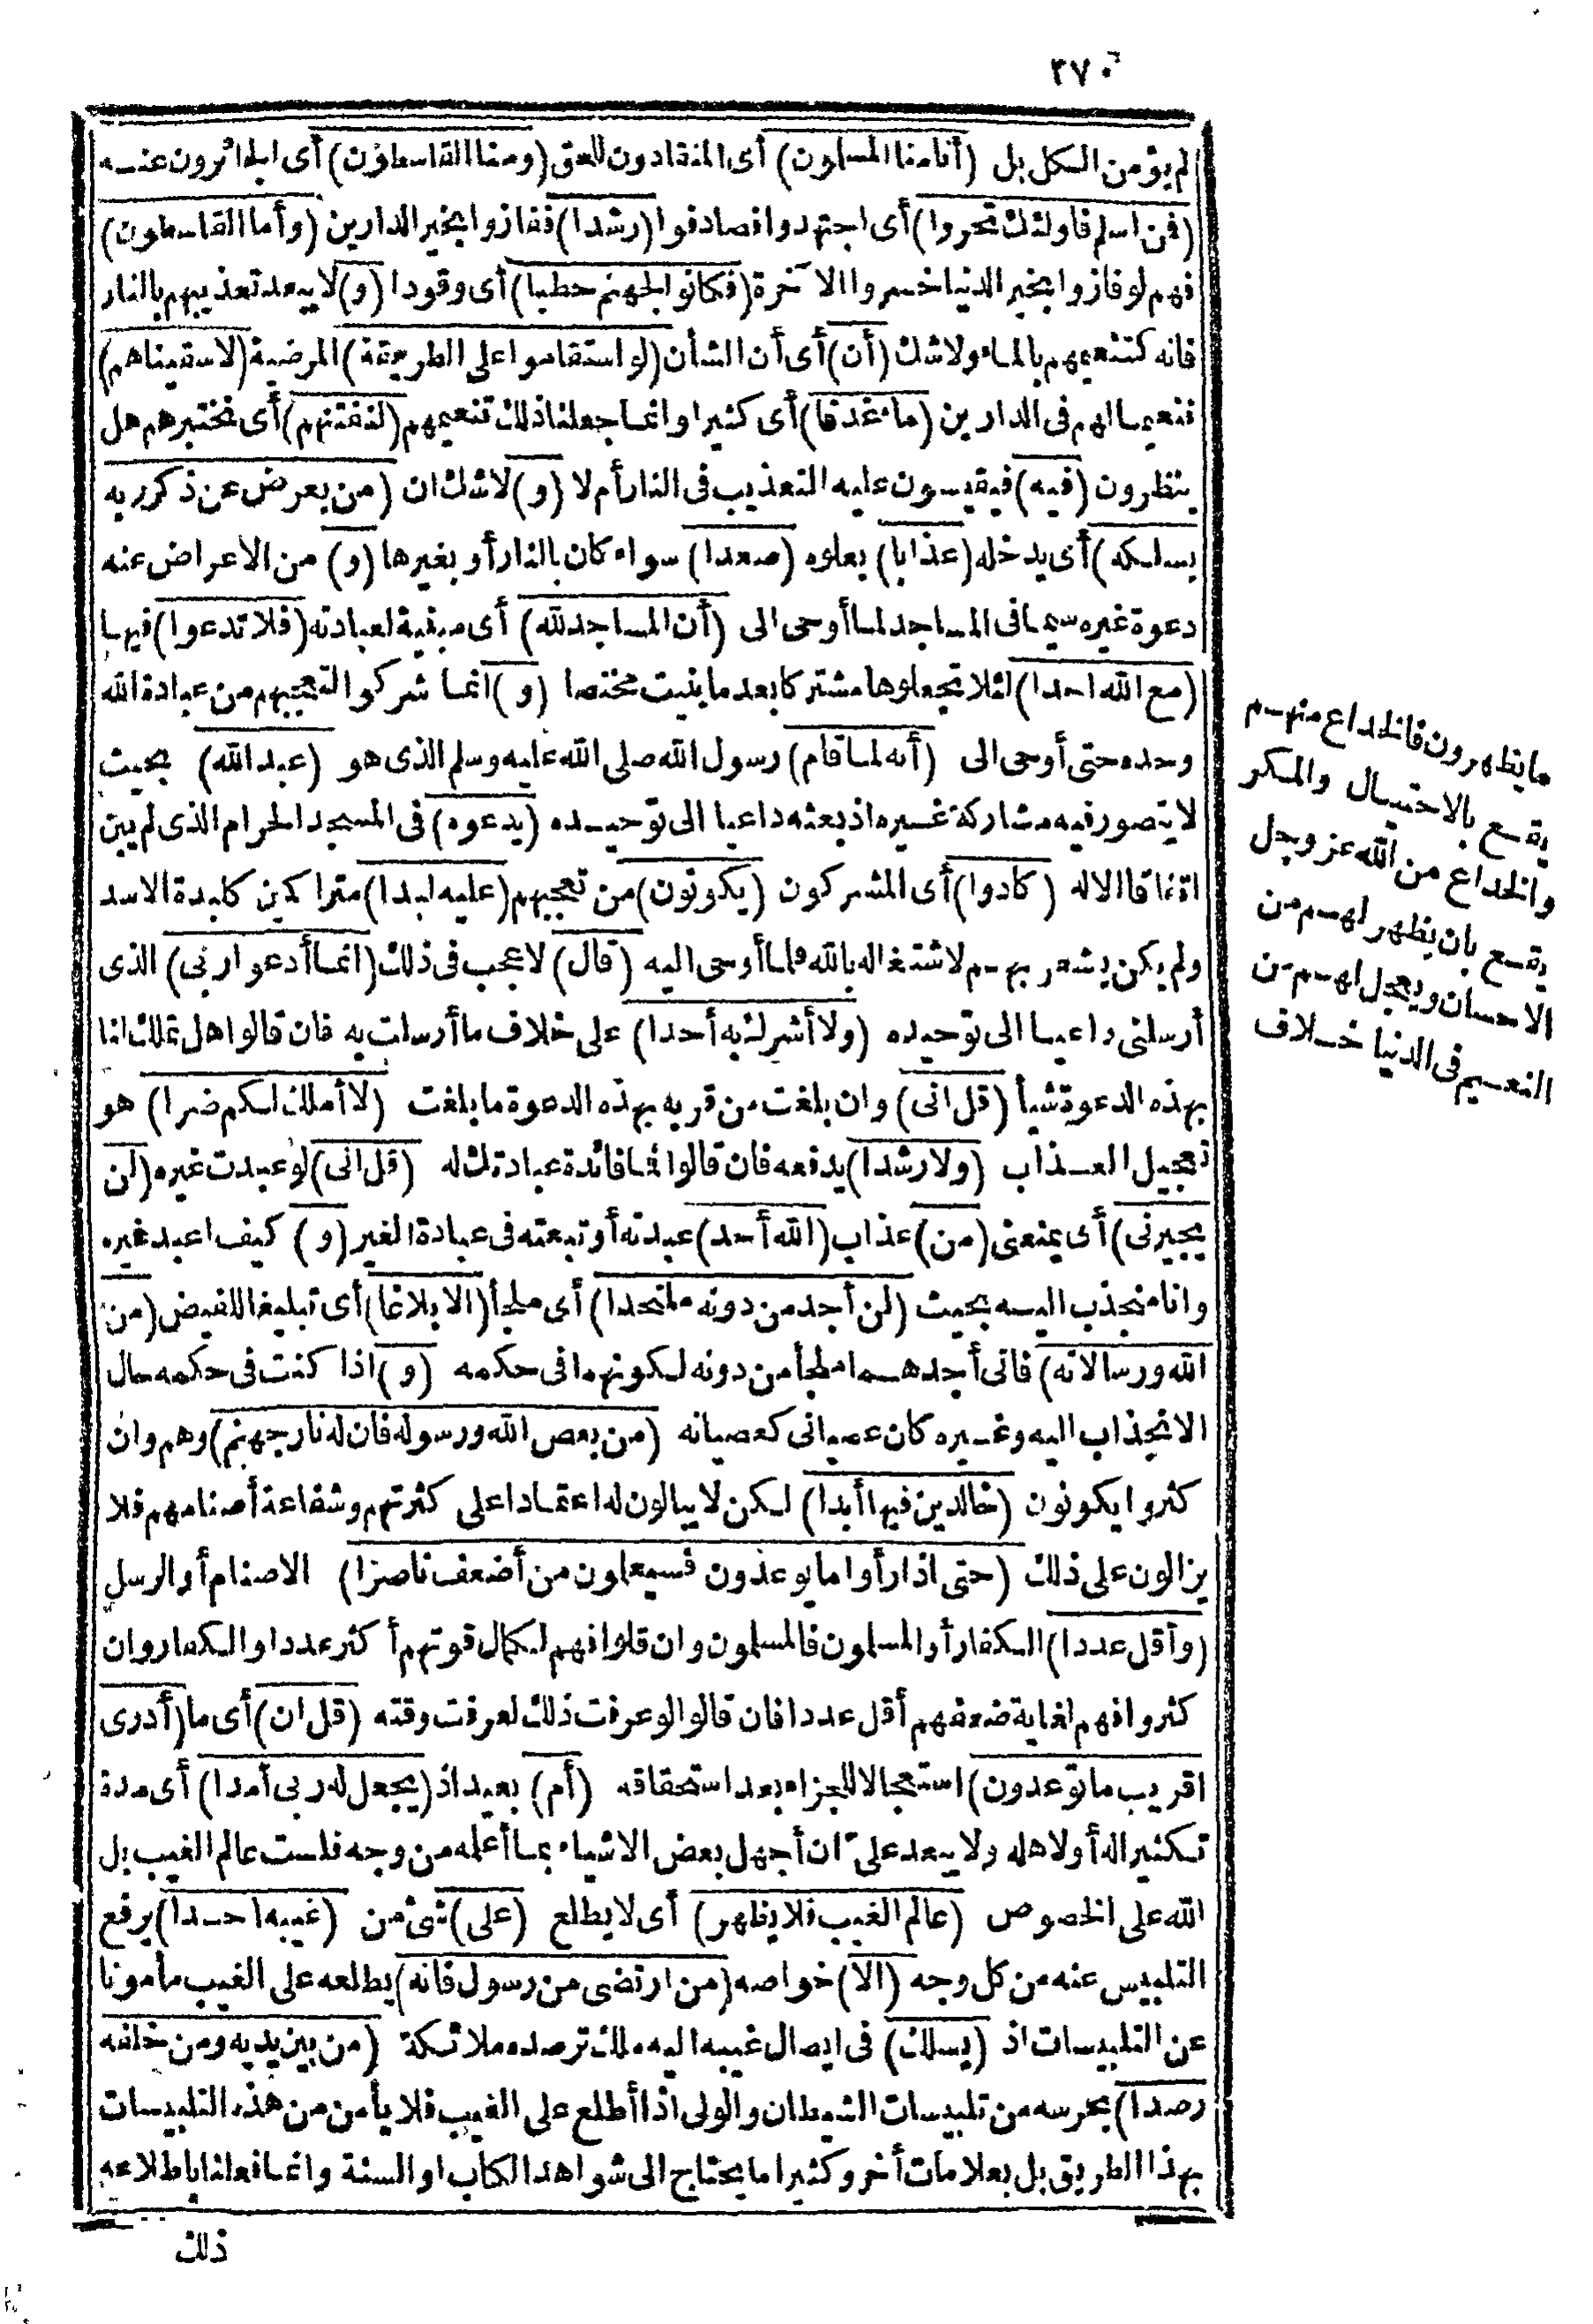 ٣٧٠
لم يؤمن الكل بل (أنا منا المسلمون) أى المنقادون للحق (ومنا القاسطون) أى الجائرون عنه
(فمن اسلم فاولئك تحروا) أى اجتهدوا فصادفوا (رشدا) ففازوا بخير الدارين (وأما القاسطون)
فهم لو فازوا بخير الدنيا خسروا الآخرة (فكانوا لجهنم حطبا) أى وقودا (و) لا يبعد تعذيبهم بالنار
فانه كتنعيمهم بالماء ولا شك (أن) أى أن الشأن (لو استقاموا على الطريقة) المرضية (لاسقيناهم)
تنعيما لهم فى الدارين (ماء غدقا) أى كثيرا وانما جعلنا ذلك تنعيمهم (لنفتنهم) أى نختبرهم هل
ينظرون (فيه) فيقيسون عليه التعذيب فى النار أم لا (و) لا شك ان (من يعرض عن ذكر ربه
يسلكه) أى يدخله (عذابا) يعلوه (صعدا) سواء كان بالنار أو بغيرها (و) من الاعراض عنه
دعوة غيره سيما فى المساجد لما أوحى الى (أن المساجد لله) أى مبنية لعبادته (فلا تدعوا) فيها
(مع الله احدا) لئلا تجعلوها مشتركا بعد ما بنيت مختصا (و) انما شركوا لتعجبهم من عبادة الله
وحده حتى أوحى الى (أنه لما قام) رسول الله صلى الله عليه وسلم الذى هو (عبد الله) بحيث
لا يتصور فيه مشاركة غيره اذ بعثه داعيا الى توحيده (يدعوه) فى المسجد الحرام الذى لم يبن
اتفاقا الا له (كادوا) أى المشركون (يكونون) من تعجبهم (عليه لبدا) متراكمين كلبدة الاسد
ولم يكن يشعر بهم لاشتغاله بالله فلما أوحى اليه (قال) لا عجب فى ذلك (انما أدعوا ربى) الذى
أرسلنى داعيا الى توحيده (ولا أشرك به أحدا) على خلاف ما أرسلت به فان قالوا هل تملك لنا
بهذه الدعوة شيأ (قل انى) وان بلغت من قربه بهذه الدعوة ما بلغت (لا أملك لكم ضرا) هو
تعجيل العذاب (ولا رشدا) يدفعه فان قالوا فما فائدة عبادتك له (قل انى) لو عبدت غيره (لن
يجيرنى) أى يمنعنى (من) عذاب (الله أحد) عبدته أو تبعته فى عبادة الغير (و) كيف اعبد غيره
وانا منجذب اليه بحيث (لن أجد من دونه ملتحدا) أى ملجأ (الا بلاغا) أى تبليغا للفيض (من
الله ورسالاته) فانى أجدهما ملجأ من دونه لكونهما فى حكمه (و) اذا كنت فى حكمه حال
الانجذاب اليه وغيره كان عصيانى كعصيانه (من يعص الله ورسوله فان له نار جهنم) وهم وان
كثروا يكونون (خالدين فيها أبدا) لكن لا يبالون له اعتمادا على كثرتهم وشفاعة أصنامهم فلا
يزالون على ذلك (حتى اذا رأوا ما يوعدون فسيعلمون من أضعف ناصرا) الاصنام أو الرسل
(وأقل عددا) الكفار أو المسلمون فالمسلمون وان قلوا فهم لكمال قوتهم أكثر عددا والكفار وان
كثروا فهم لغاية ضعفهم أقل عددا فان قالوا لو عرفت ذلك لعرفت وقته (قل ان) أى ما (أدرى
اقريب ما توعدون) استعجالا للجزاء بعد استحقاقه (أم) بعيد اذ (يجعل له ربى أمدا) أى مدة
تكثيرا له أو لاهله ولا يبعد علىّ ان أجهل بعض الاشياء بما أعلمه من وجه فلست عالم الغيب بل
الله على الخصوص (عالم الغيب فلا يظهر) أى لا يطلع (على) شئ من (غيبه احدا) يرفع
التلبيس عنه من كل وجه (الا) خواصه (من ارتضى من رسول فانه) يطلعه على الغيب مأمونا
عن التلبيسات اذ (يسلك) فى ايصال غيبه اليه ملك ترصده ملائكة (من بين يديه ومن خلفه
رصدا) يحرسه من تلبيسات الشيطان والولى اذا أطلع على الغيب فلا يأمن من هذه التلبيسات
بهذا الطريق بل بعلامات أخر وكثيرا ما يحتاج الى شواهد الكتاب او السنة وانما فعلنا باطلاعه
ذلك
ما يظهرون فانخداع منهم
يقع بالاحتيال والمكر
والخداع من الله عز وجل
يقع بان يظهر لهم من
الاحسان ويعجل لهم من
النعيم فى الدنيا خلاف